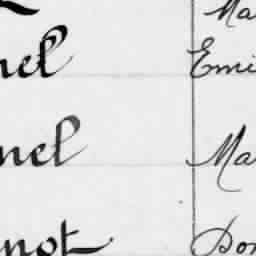 Ma
nel Emi
nel Ma
not Don